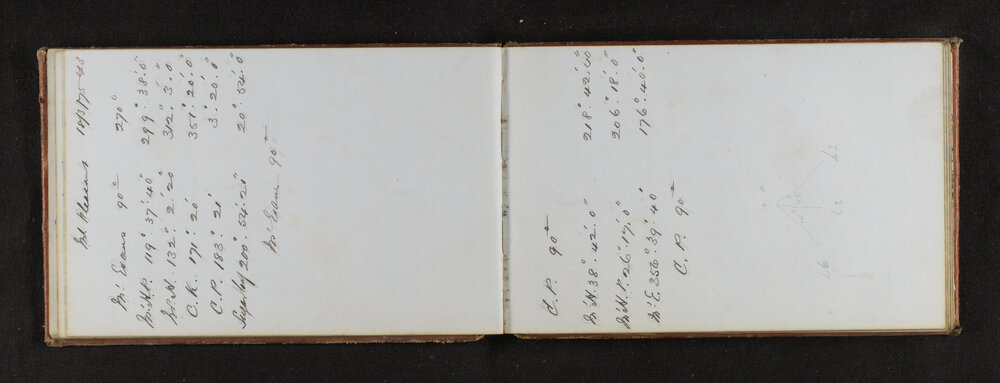 Mt Pleasant 18/3/75 43
Mt Evans 90° 270°
Mt H.P. 119°. 37'. 40" 299°. 38'. 0"
Mt H. 132°. 2'. 20" 312°. 3'. 0"
C.K. 171°. 20' 351°. 20'. 0"
C.P. 183°. 21' 3°. 20'. 0"
Sugarloaf 200°. 54'. 20" 20°. 54'. 0"
Mt Evans 90°
C.P. 90°
Mt H. 38°. 42'. 0" 218°. 42'. 00
Mt H.P. 26°. 17'. 0" 206°. 18'. 0"
Mt E. 356°. 39'. 40 176°. 40'. 0"
C.P. 90°